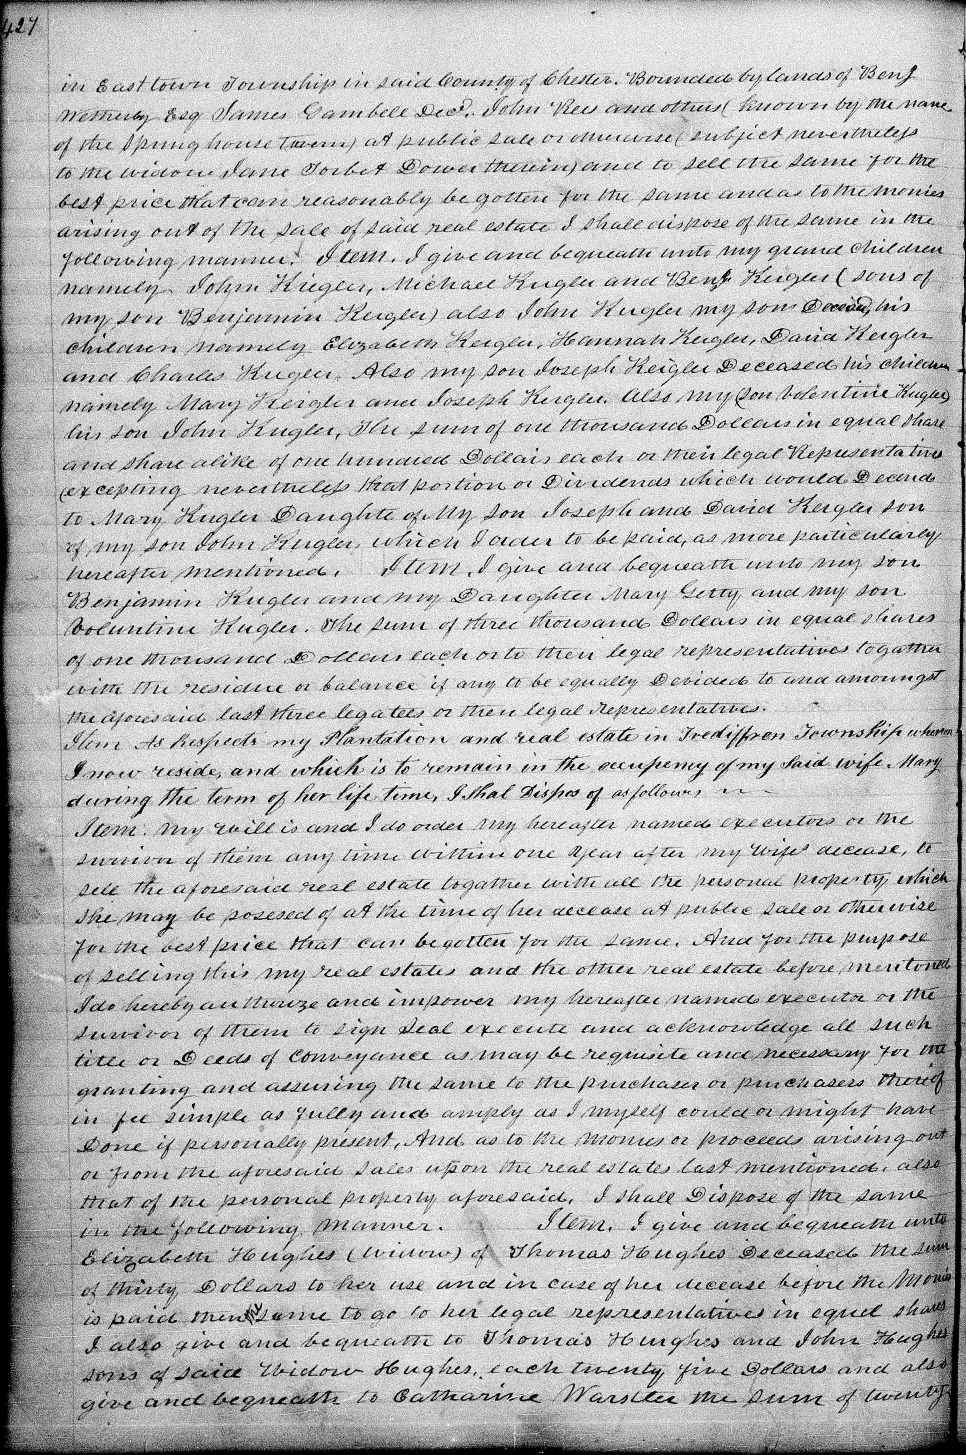 427
in East town Township in said County of Chester. Bounded by lands of Benj
Wetherby Esq James Gambell Decd. John Rees and others (known by the name
of the Spring house tavern) at public sale or otherwise (subject nevertheless
to the widow Jane Torbet Dower therein) and to sell the same for the
best price that can reasonably be gotten for the same and as to the monies
arising out of the sale of said real estate I shall dispose of the same in the
following manner. Item. I give and bequeath unto my grand Children
namely John Kugler, Michael Kugler and Benj Keigler (sons of
my son Benjamin Keigler) also John Kugler my son Deceased, his
children namely Elizabeth Keigler, Hannah Keigler, David Keigler
and Charles Kugler. Also my son Joseph Keigler Deceased his children
namely Mary Keigler and Joseph Keigler. Also my (son Volentine Kugler)
his son John Kugler, The sum of one thousand Dollars in equal share
and share alike of one hundred Dollars each or their legal Representatives
(excepting nevertheless that portion or Dividends which would Decend
to Mary Kugler Daughte of My son Joseph and David Keigler son
of, my son John Kugler, which I order to be paid, as more particularly
hereafter mentioned. Item, I give and bequeath unto my son
Benjamin Kugler and my Daughter Mary Getty and my son
Voluntine Kugler. The sum of three thousand Dollars in equal shares
of one thousand Dollars each or to their legal representatives togather
with the residue or balance if any to be equally Devided to and amoungst
the aforesaid last three legatees or their legal Representatives.
Item As Respects my Plantation and real estate in Trediffren Township whereon
I now reside, and which is to remain in the occupency of my said wife Mary
during the term of her life time, I Shal Dispos of as follows
Item. My will is and I do order my hereafter named executors or the
survivor of them any time within one year after my Wifes decease, to
sell the aforesaid real estate togather with all the personal property which
she may be posesed of at the time of her decease at public sale or otherwise
for the best price that can be gotten for the same. And for the purpose
of selling this my real estates and the other real estate before mentoned
I do hereby authorize and impower my hereafter named executor or the
survivor of them to sign Seal execute and acknowledge all such
title or Deeds of Conveyance as may be requisite and necessary for the
granting and assuring the same to the purchaser or purchasers thereof
in fee simple as fully and amply as I myself could or might have
Done if personally present, And as to the Monies or proceeds arising out
or from the aforesaid sales upon the real estates last mentioned. also
that of the personal property aforesaid, I shall Dispose of the same
in the following manner. Item. I give and bequeath unto
Elizabeth Hughes (Widow) of Thomas Hughes Deceased the sum
of thirty Dollars to her use and in case of her decease before the Monies
is paid then same to go to her legal representatives in equel shares
I also give and bequeath to Thomas Hughes and John Hughes
sons of said Widow Hughes, each twenty five Dollars and also
give and bequeath to Catharine Warsler the sum of twenty